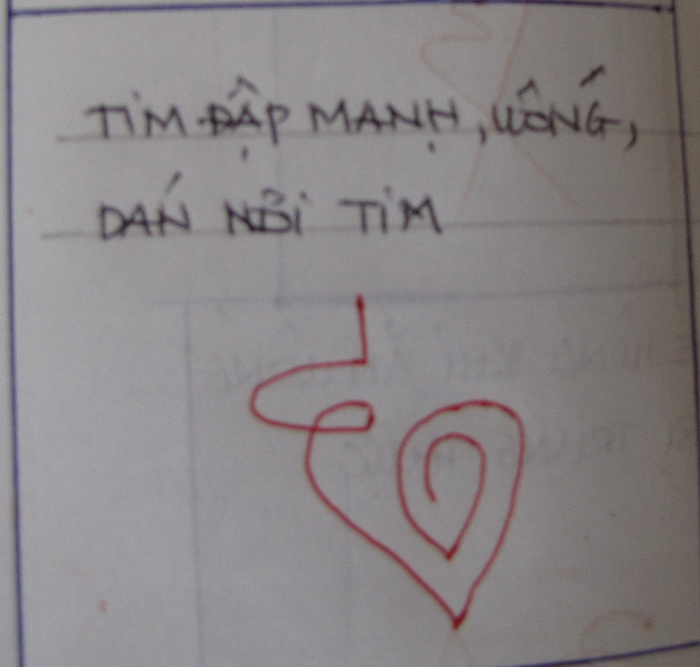 TIM ĐẬP MẠNH, UỐNG,
DÁN NƠI TIM